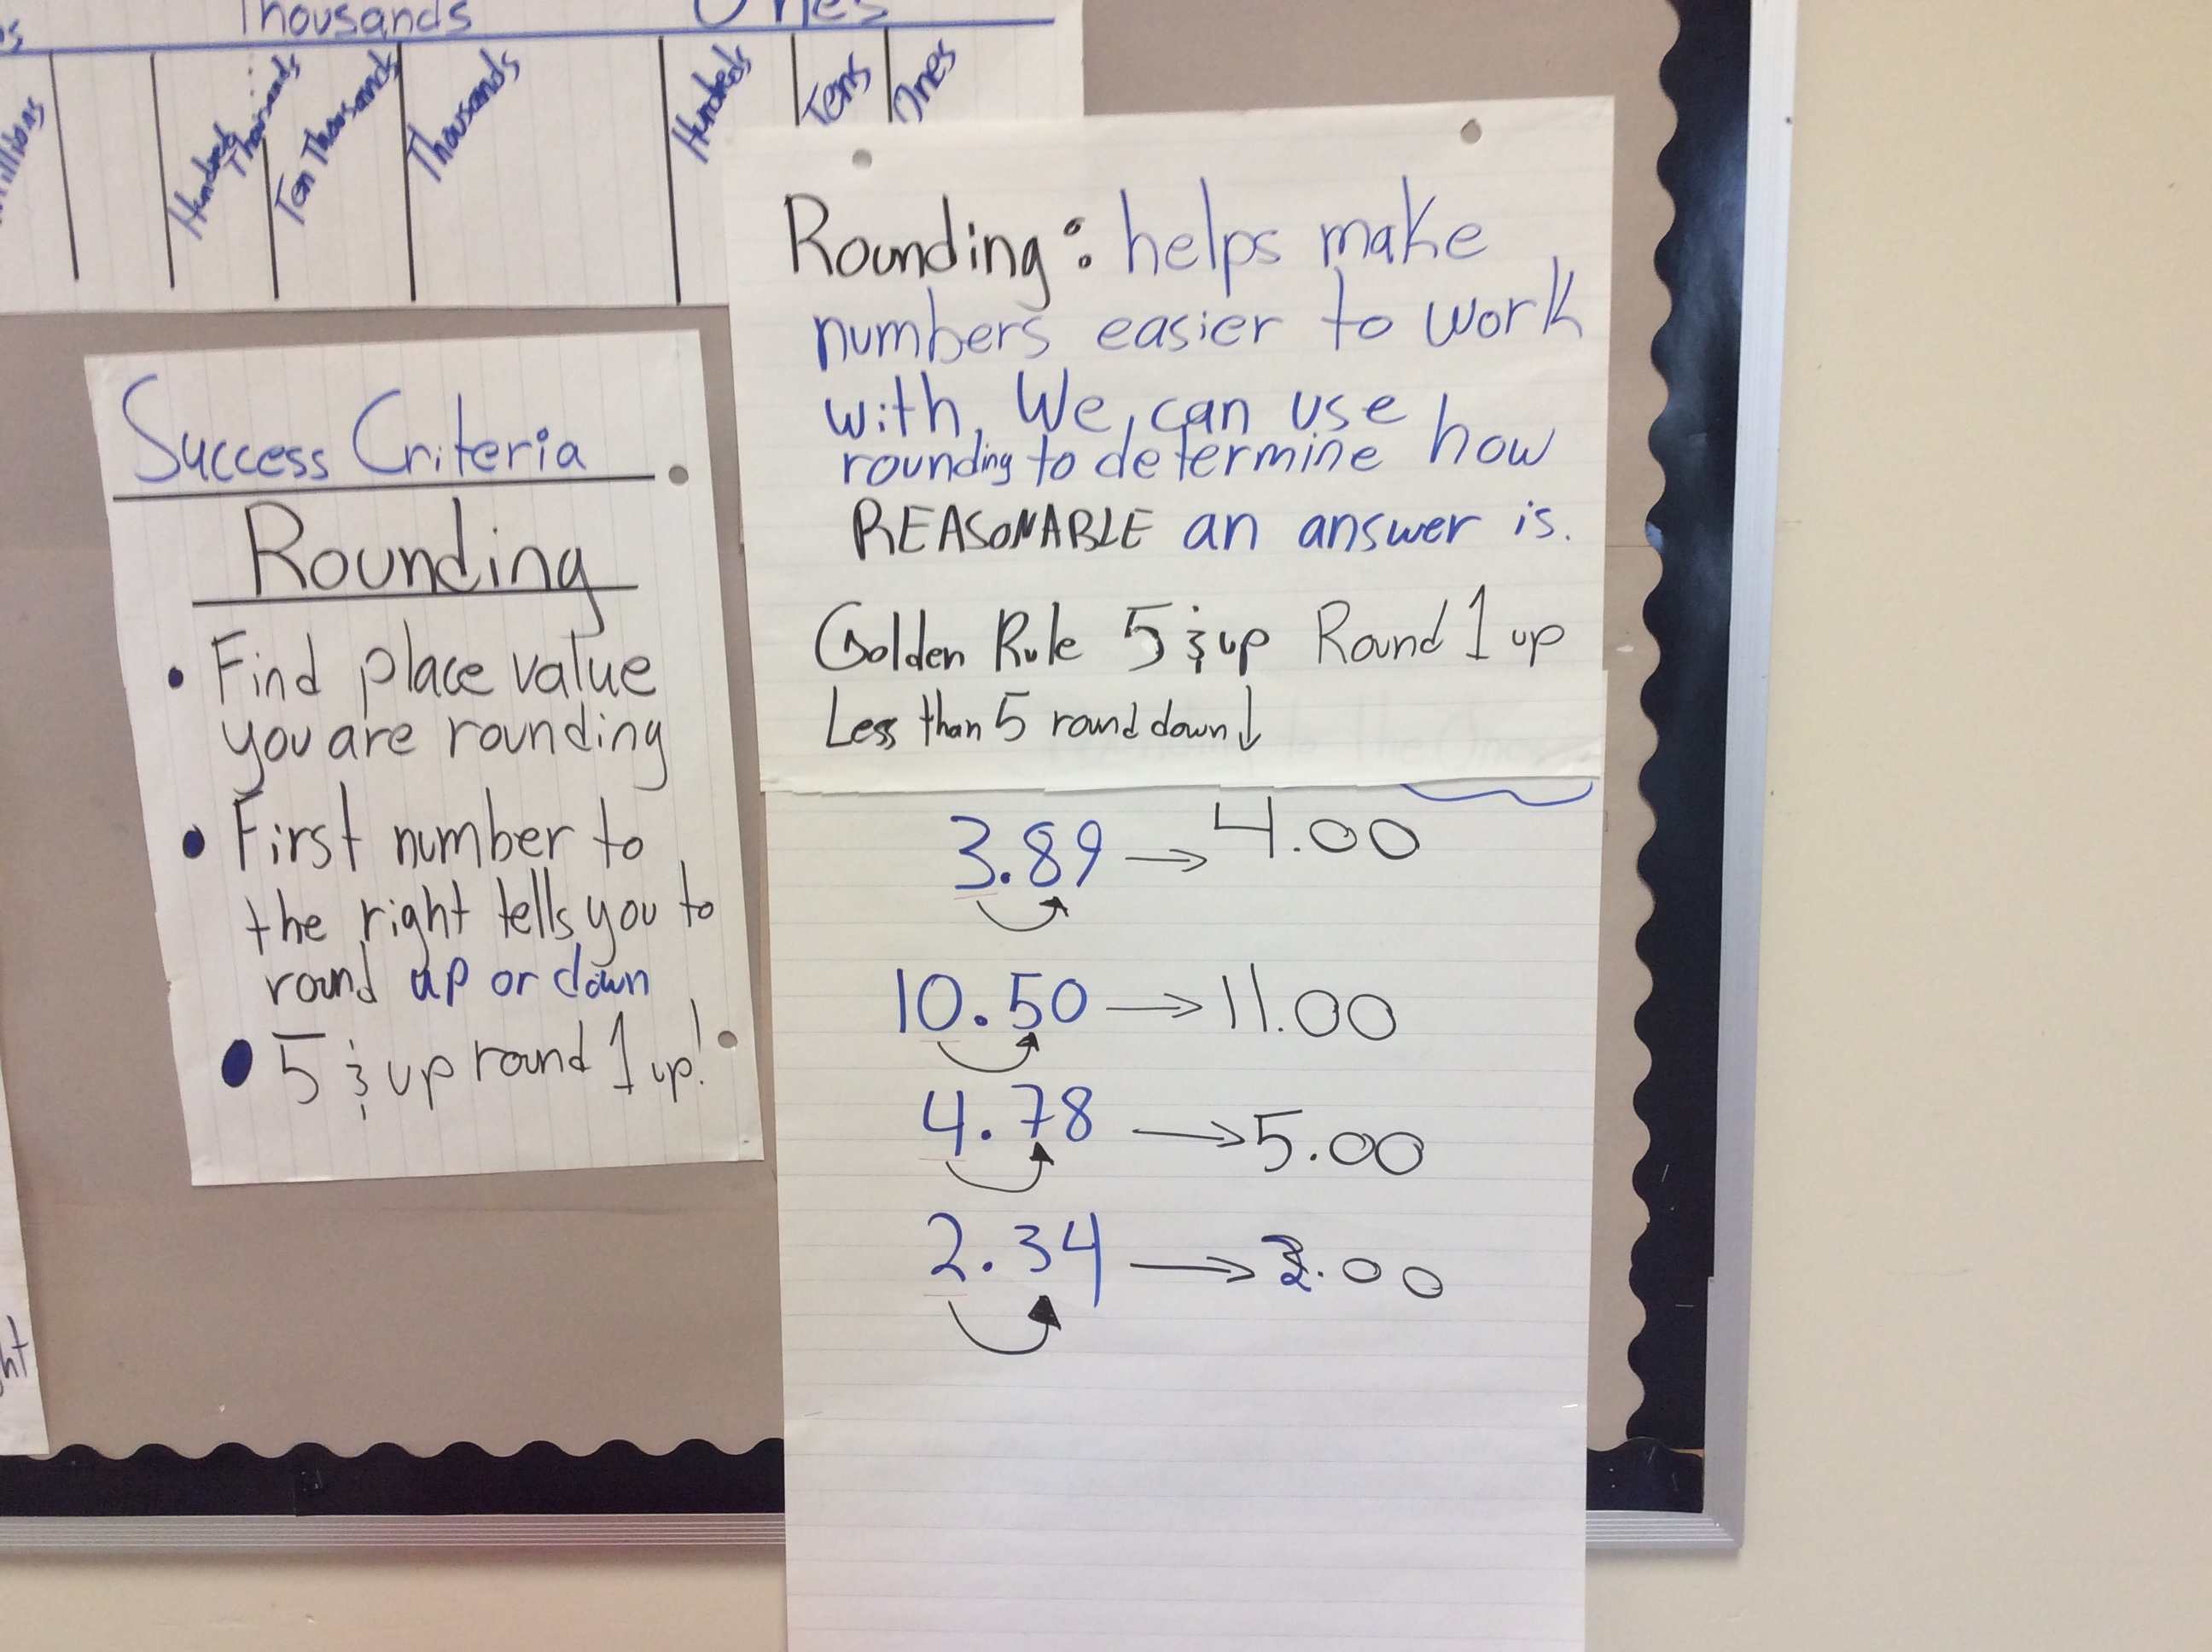 Thousands
Ones
Hundreds
Thousands
Ten Thousands
Thousands
Hundreds
Tens
Ones
Success Criteria
Rounding
• Find place value
you are rounding
• First number to
the right tells you to
round up or down
• 5 & up round 1 up!
Rounding: helps make
numbers easier to work
with. We can use
rounding to determine how
REASONABLE an answer is.
Golden Rule 5 & up Round 1 up
Less than 5 round down ↓
3.89 → 4.00
10.50 → 11.00
4.78 → 5.00
2.34 → 2.00